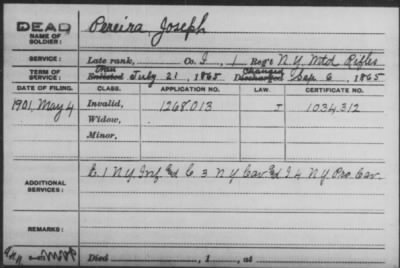 DEAD
NAME OF SOLDIER:
Pereira, Joseph
SERVICE:
Late rank, Co. I, 1 Reg't N.Y. Mtd Rifles
TERM OF SERVICE:
Tran
Enlisted July 21, 1865
Changed
Discharged Sep 6, 1865
DATE OF FILING. CLASS. APPLICATION NO. LAW. CERTIFICATE NO.
1901, May 4 Invalid, 1268.013 I 1034.312
Widow,
Minor,
ADDITIONAL SERVICES:
E. 1 N Y Inf and C. 3 N Y Cav and I 4 N Y Pro. Cav.
REMARKS:
Died , 1 , at